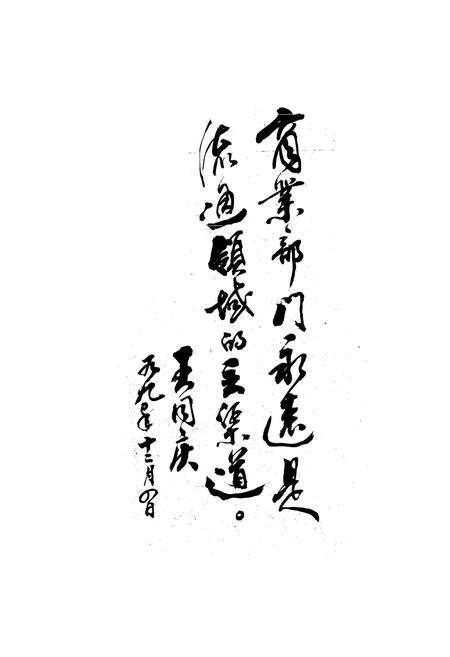 商業部門永遠是
流通領域的主渠道。
王同庆
一九九〇年十二月四日